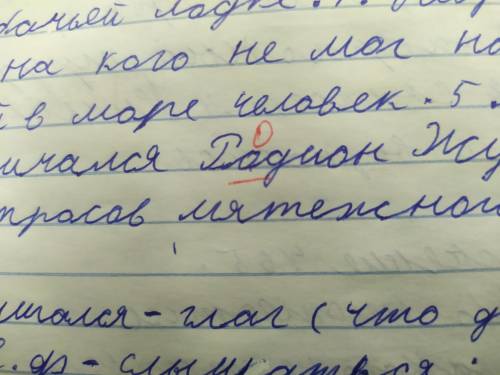 бачьей лодке. 4.
на кого не мог на
й в море человек. 5.
ичался Гадион Жу
О
тросов мятежного
шался - глаг (что д
ф - слышаться